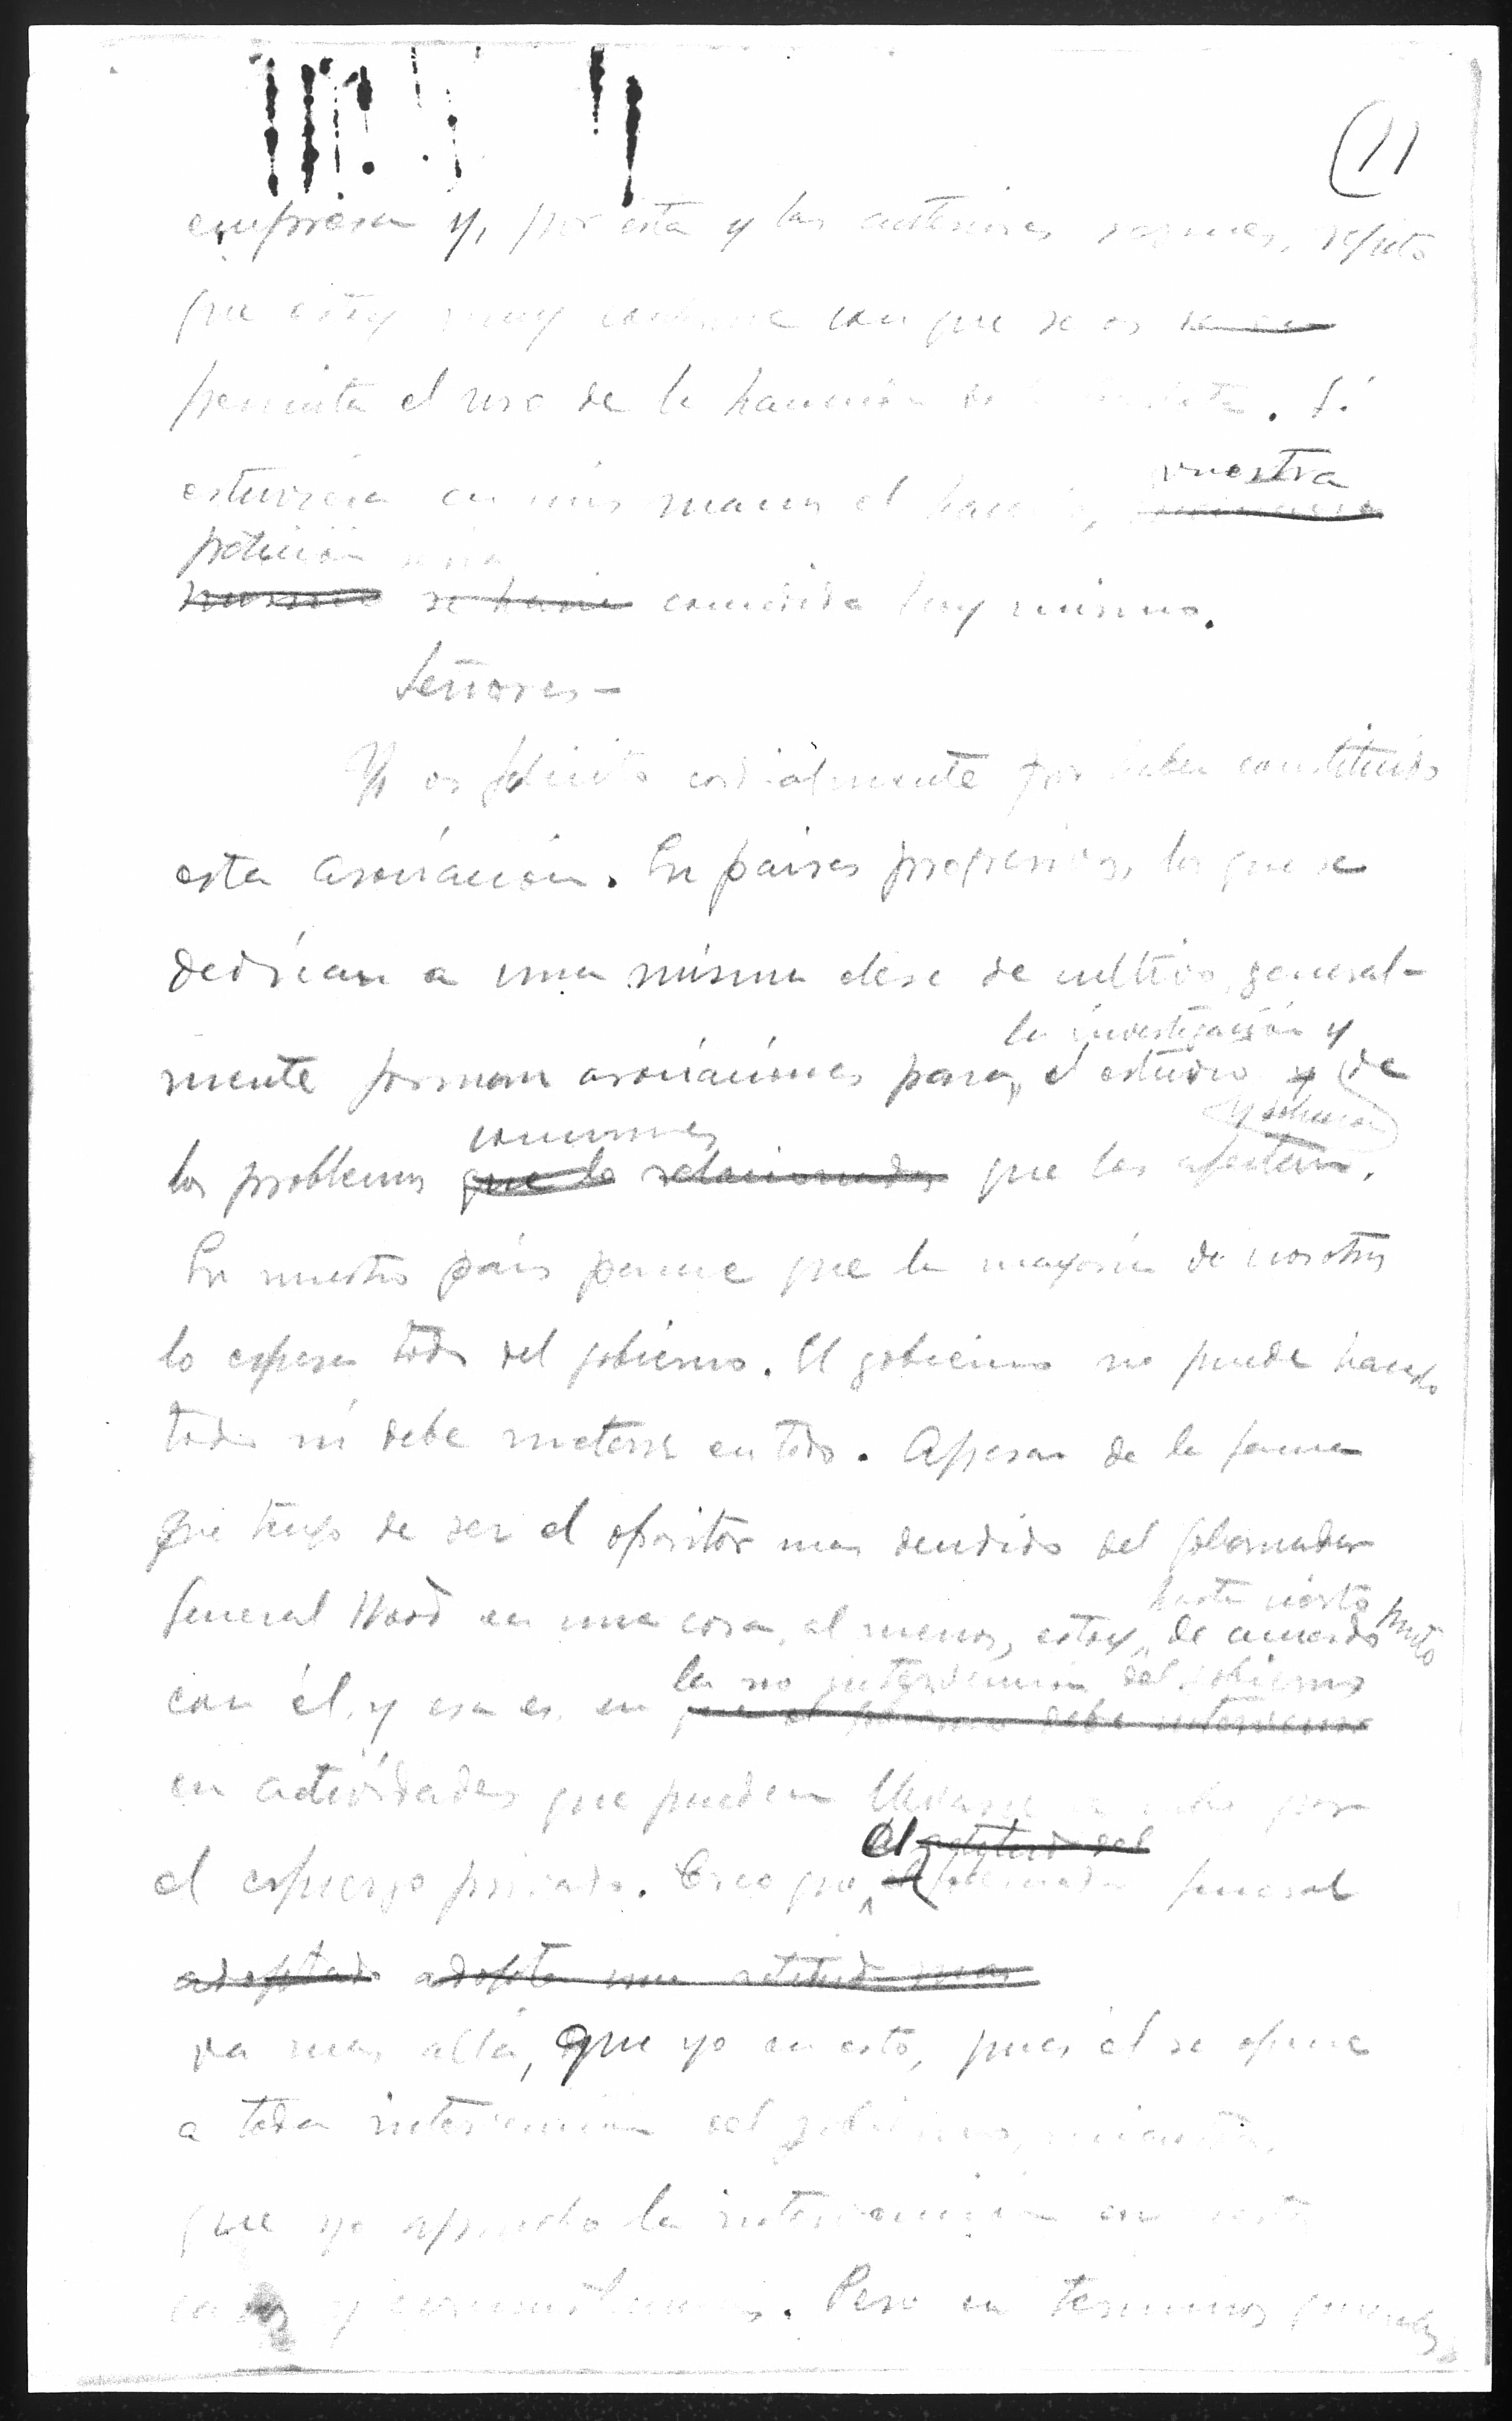 (11
empresa y, por esta y las anteriores razones, repito
que estoy muy conforme con que se os
permita el uso de la hacienda de . Si
estuviera en mis manos el hacerlo, vuestra
petición sería
se haría concedida hoy mismo.
Señores —
Yo os felicito cordialmente por haber constituido
esta asociación. En países progresivos, los que se
dedican a una misma clase de cultivo, general-
la investigación y
mente forman asociaciones para el estudio y de
y solución
comunes
los problemas que la relacionados que les afectan.
En nuestro país parece que la mayoría de nosotros
lo espera todo del gobierno. El gobierno no puede hacerlo
todo ni debe meterse en todo. Apesar de la fama
que tengo de ser el opositor mas decidido del Gobernador
hasta cierto punto
General Wood en una cosa, al menos, estoy de acuerdo
la no intervención del gobierno
con él, y esa es, en que el gobierno debe intervenir
en actividades que pueden llevarse a cabo por
el actitud del
el esfuerzo privado. Creo que el Gobernador General
adoptado adopta una actitud mas
va mas allá, que yo en esto, pues él se opone
a toda intervención del gobierno, mientras
que yo apruebo la intervención en ciertos
casos y circunstancias. Pero en terminos generales,